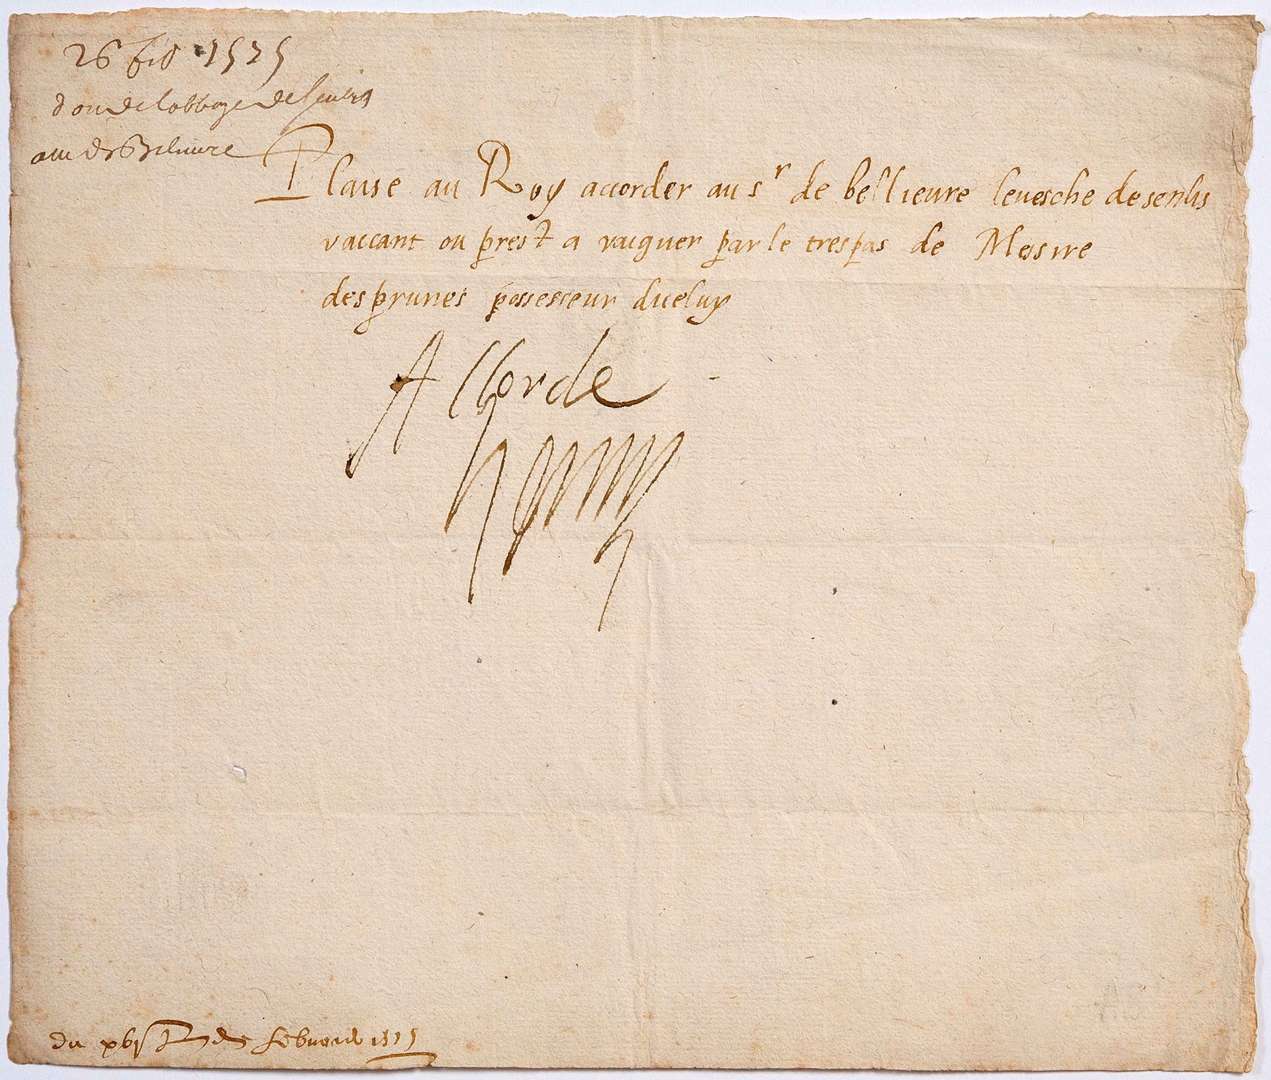 26 feb 1575
don de labbaye de senlis
a mr de Bellieure
Plaise au Roy accorder au sr de bellieure leuesche de senlis
vaccant ou prest a vacquer par le trespas de Messire
desprunes possesseur diceluy
Accorde
Henry
du xxvje de februarii 1575